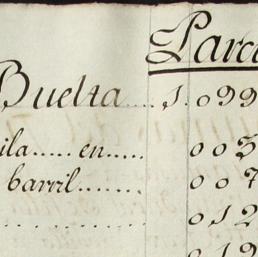 Parc
Buelta.... 1. 099
ila..... en..... 003
barril....... 007
............. 012
019